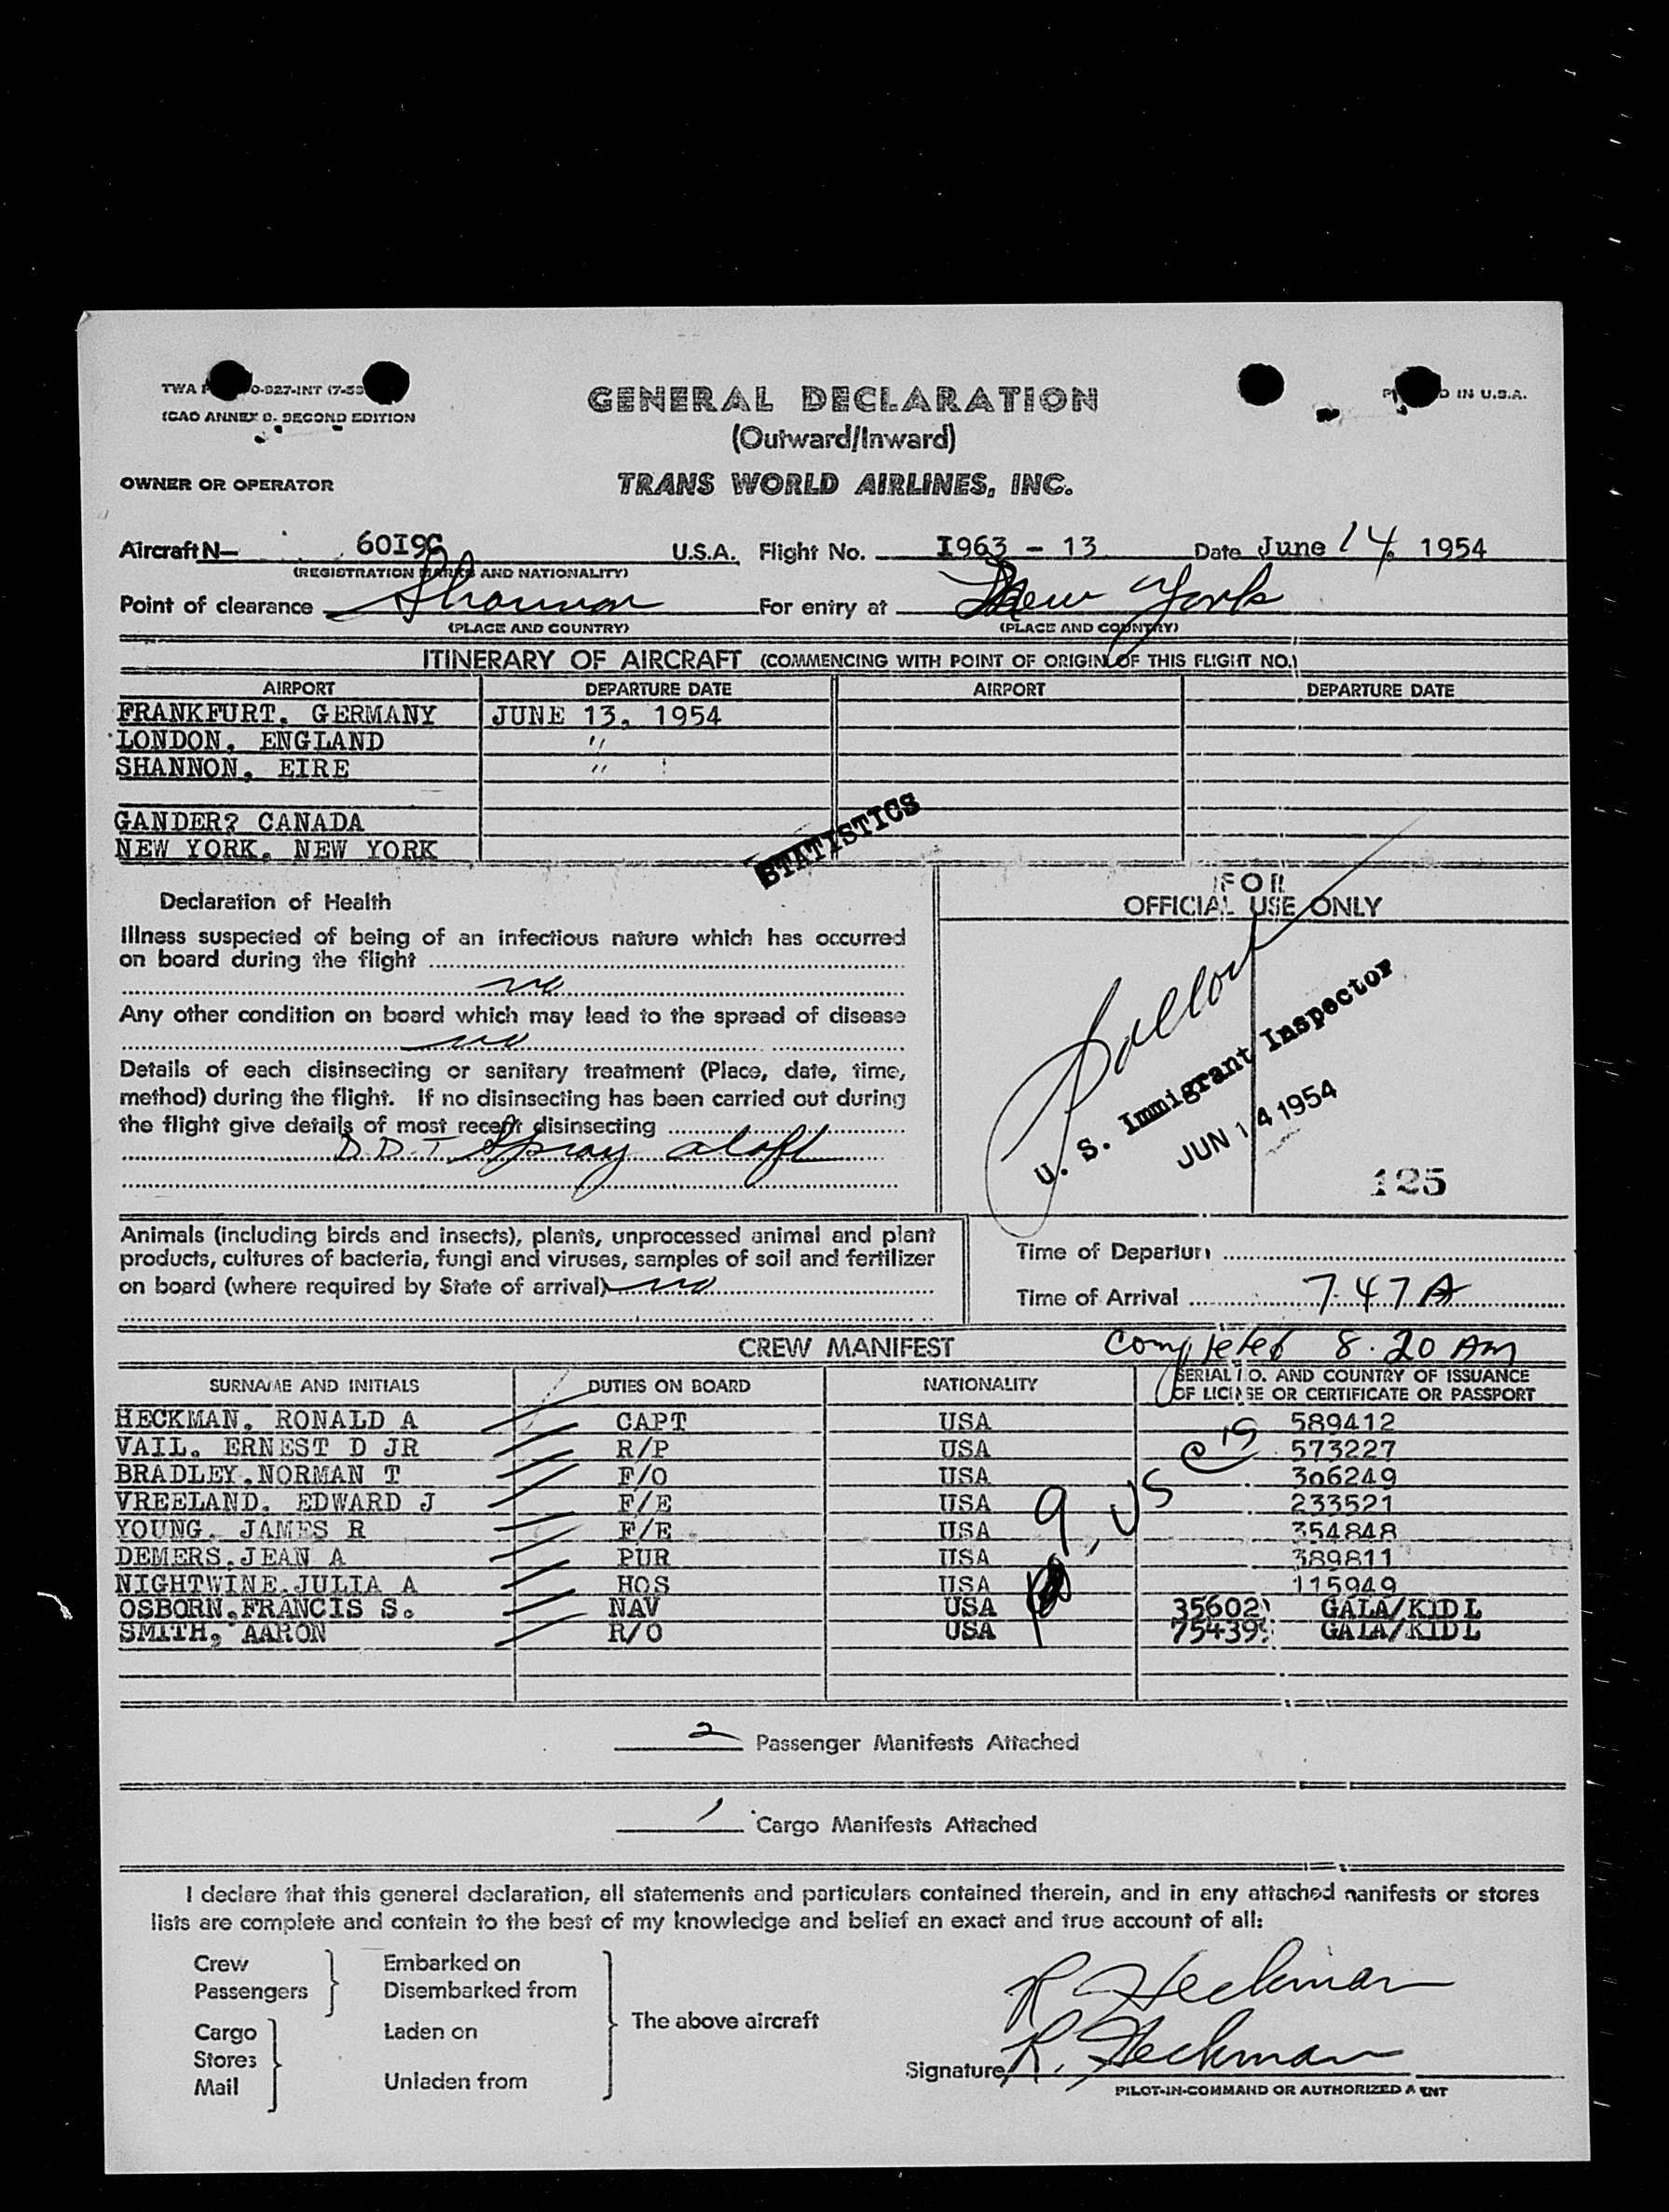 GENERAL DECLARATION
(Outward/Inward)
TWA 0-927-INT (7-53
ICAO ANNEX 9. SECOND EDITION
IN U.S.A.
OWNER OR OPERATOR TRANS WORLD AIRLINES, INC.
Aircraft N— 60I9C U.S.A. Flight No. I963 - 13 Date June 14, 1954
(REGISTRATION MARKS AND NATIONALITY)
Point of clearance Shannon For entry at New York
(PLACE AND COUNTRY) (PLACE AND COUNTRY)
ITINERARY OF AIRCRAFT (COMMENCING WITH POINT OF ORIGIN OF THIS FLIGHT NO.)
AIRPORT DEPARTURE DATE AIRPORT DEPARTURE DATE
FRANKFURT, GERMANY JUNE 13, 1954
LONDON, ENGLAND "
SHANNON, EIRE "
GANDER? CANADA
NEW YORK, NEW YORK
STATISTICS
Declaration of Health
FOR
OFFICIAL USE ONLY
Illness suspected of being of an infectious nature which has occurred
on board during the flight
no
Any other condition on board which may lead to the spread of disease
no
Details of each disinsecting or sanitary treatment (Place, date, time,
method) during the flight. If no disinsecting has been carried out during
the flight give details of most recent disinsecting
D.D.T Spray aloft
U. S. Immigrant Inspector
JUN 14 1954
125
Animals (including birds and insects), plants, unprocessed animal and plant
products, cultures of bacteria, fungi and viruses, samples of soil and fertilizer
on board (where required by State of arrival) no
Time of Departure
Time of Arrival 7.47 A
CREW MANIFEST Completed 8.20 AM
SURNAME AND INITIALS DUTIES ON BOARD NATIONALITY SERIAL NO. AND COUNTRY OF ISSUANCE
OF LICENSE OR CERTIFICATE OR PASSPORT
HECKMAN, RONALD A CAPT USA 589412
VAIL, ERNEST D JR R/P USA 573227
BRADLEY,NORMAN T F/O USA 306249
VREELAND, EDWARD J F/E USA 233521
YOUNG, JAMES R F/E USA 354848
DEMERS,JEAN A PUR USA 389811
NIGHTWINE,JULIA A HOS USA 115949
OSBORN,FRANCIS S. NAV USA 35602 GALA/KIDL
SMITH, AARON R/O USA 75439 GALA/KIDL
9 US
2 Passenger Manifests Attached
1 Cargo Manifests Attached
I declare that this general declaration, all statements and particulars contained therein, and in any attached manifests or stores
lists are complete and contain to the best of my knowledge and belief an exact and true account of all:
Crew Embarked on
Passengers Disembarked from
The above aircraft
Cargo Laden on
Stores
Mail Unladen from
R Heckman
Signature R. Heckman
PILOT-IN-COMMAND OR AUTHORIZED AGENT